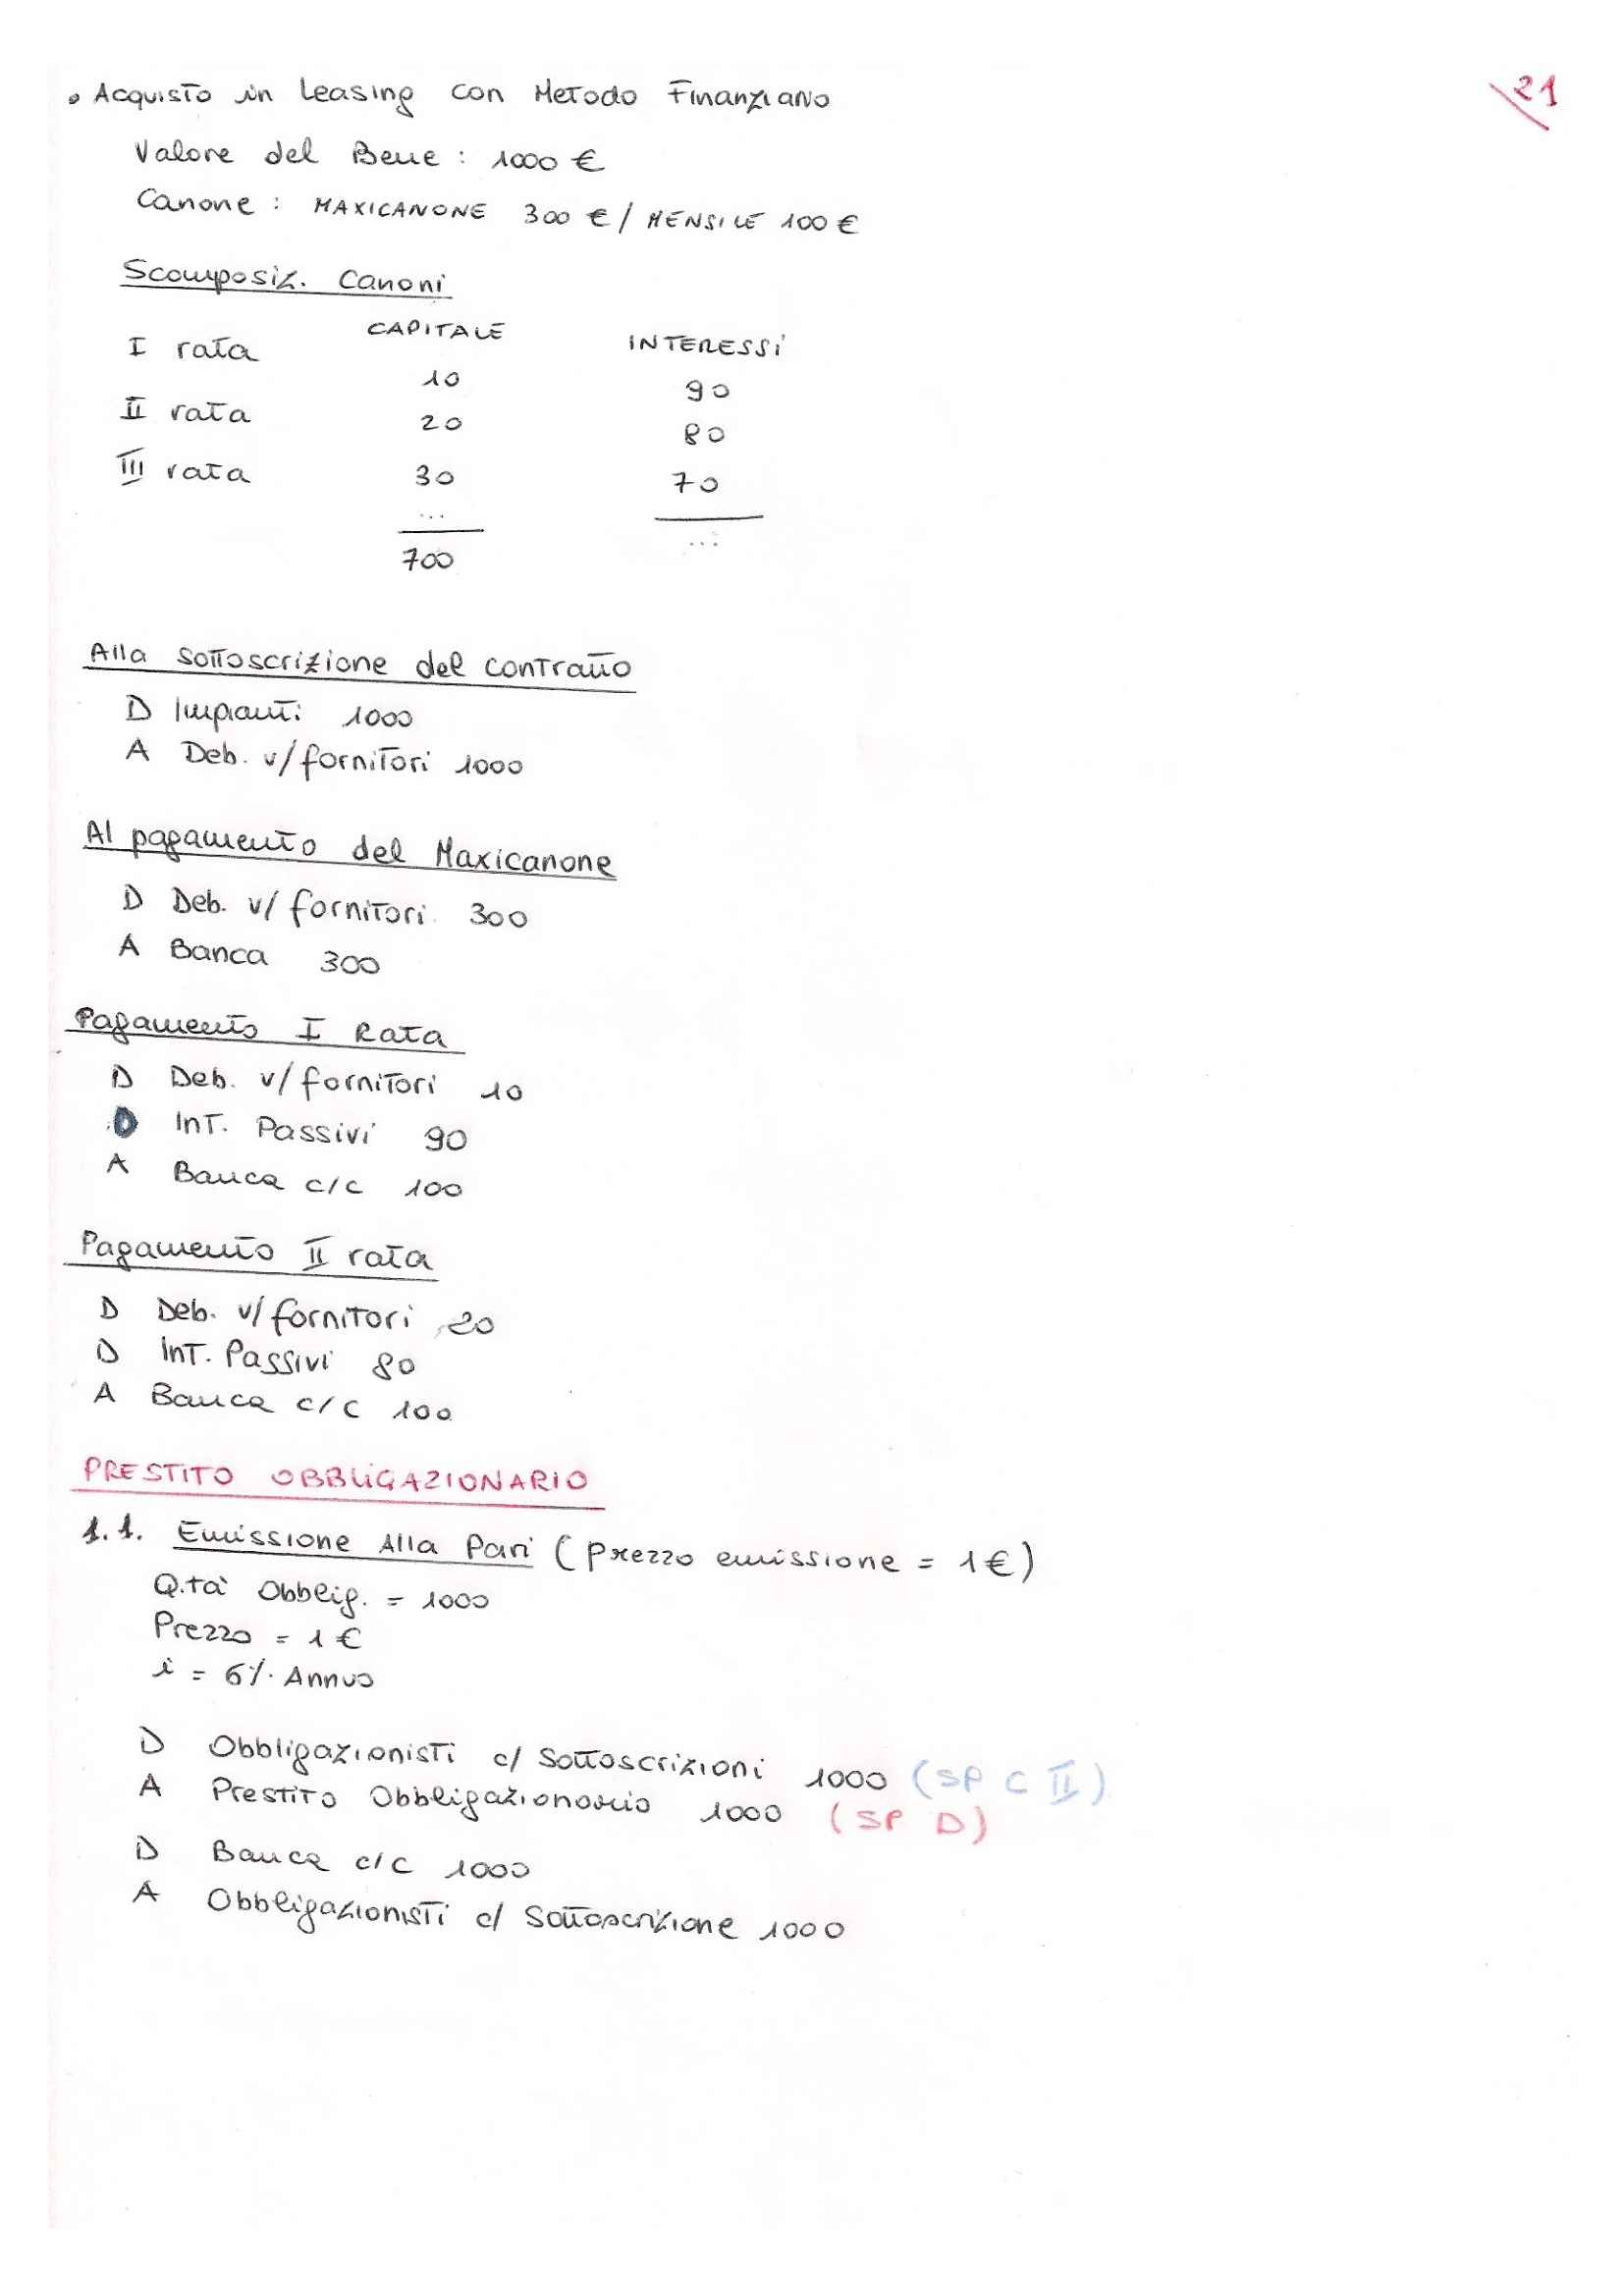 21
• Acquisto in Leasing con Metodo Finanziario
Valore del Bene : 1000 €
Canone : MAXICANONE 300 € / MENSILE 100 €
Scomposiz. Canoni
CAPITALE INTERESSI
I rata 10 90
II rata 20 80
III rata 30 70
... ...
700
Alla sottoscrizione del contratto
D Impianti 1000
A Deb. v/fornitori 1000
Al pagamento del Maxicanone
D Deb. v/ fornitori 300
A Banca 300
Pagamento I Rata
D Deb. v/ fornitori 10
D Int. Passivi 90
A Banca c/c 100
Pagamento II rata
D Deb. v/ fornitori 20
D Int. Passivi 80
A Banca c/c 100
PRESTITO OBBLIGAZIONARIO
1.1. Emissione Alla Pari (prezzo emissione = 1 €)
Q.tà Obblig. = 1000
Prezzo = 1 €
i = 6% Annuo
D Obbligazionisti c/ Sottoscrizioni 1000 (SP C II)
A Prestito Obbligazionario 1000 (SP D)
D Banca c/c 1000
A Obbligazionisti c/ Sottoscrizione 1000